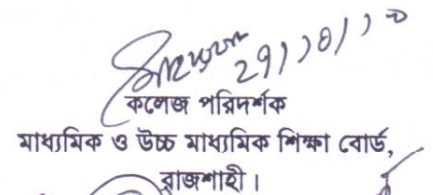 কলেজ পরিদর্শক
মাধ্যমিক ও উচ্চ মাধ্যমিক শিক্ষা বোর্ড,
রাজশাহী।